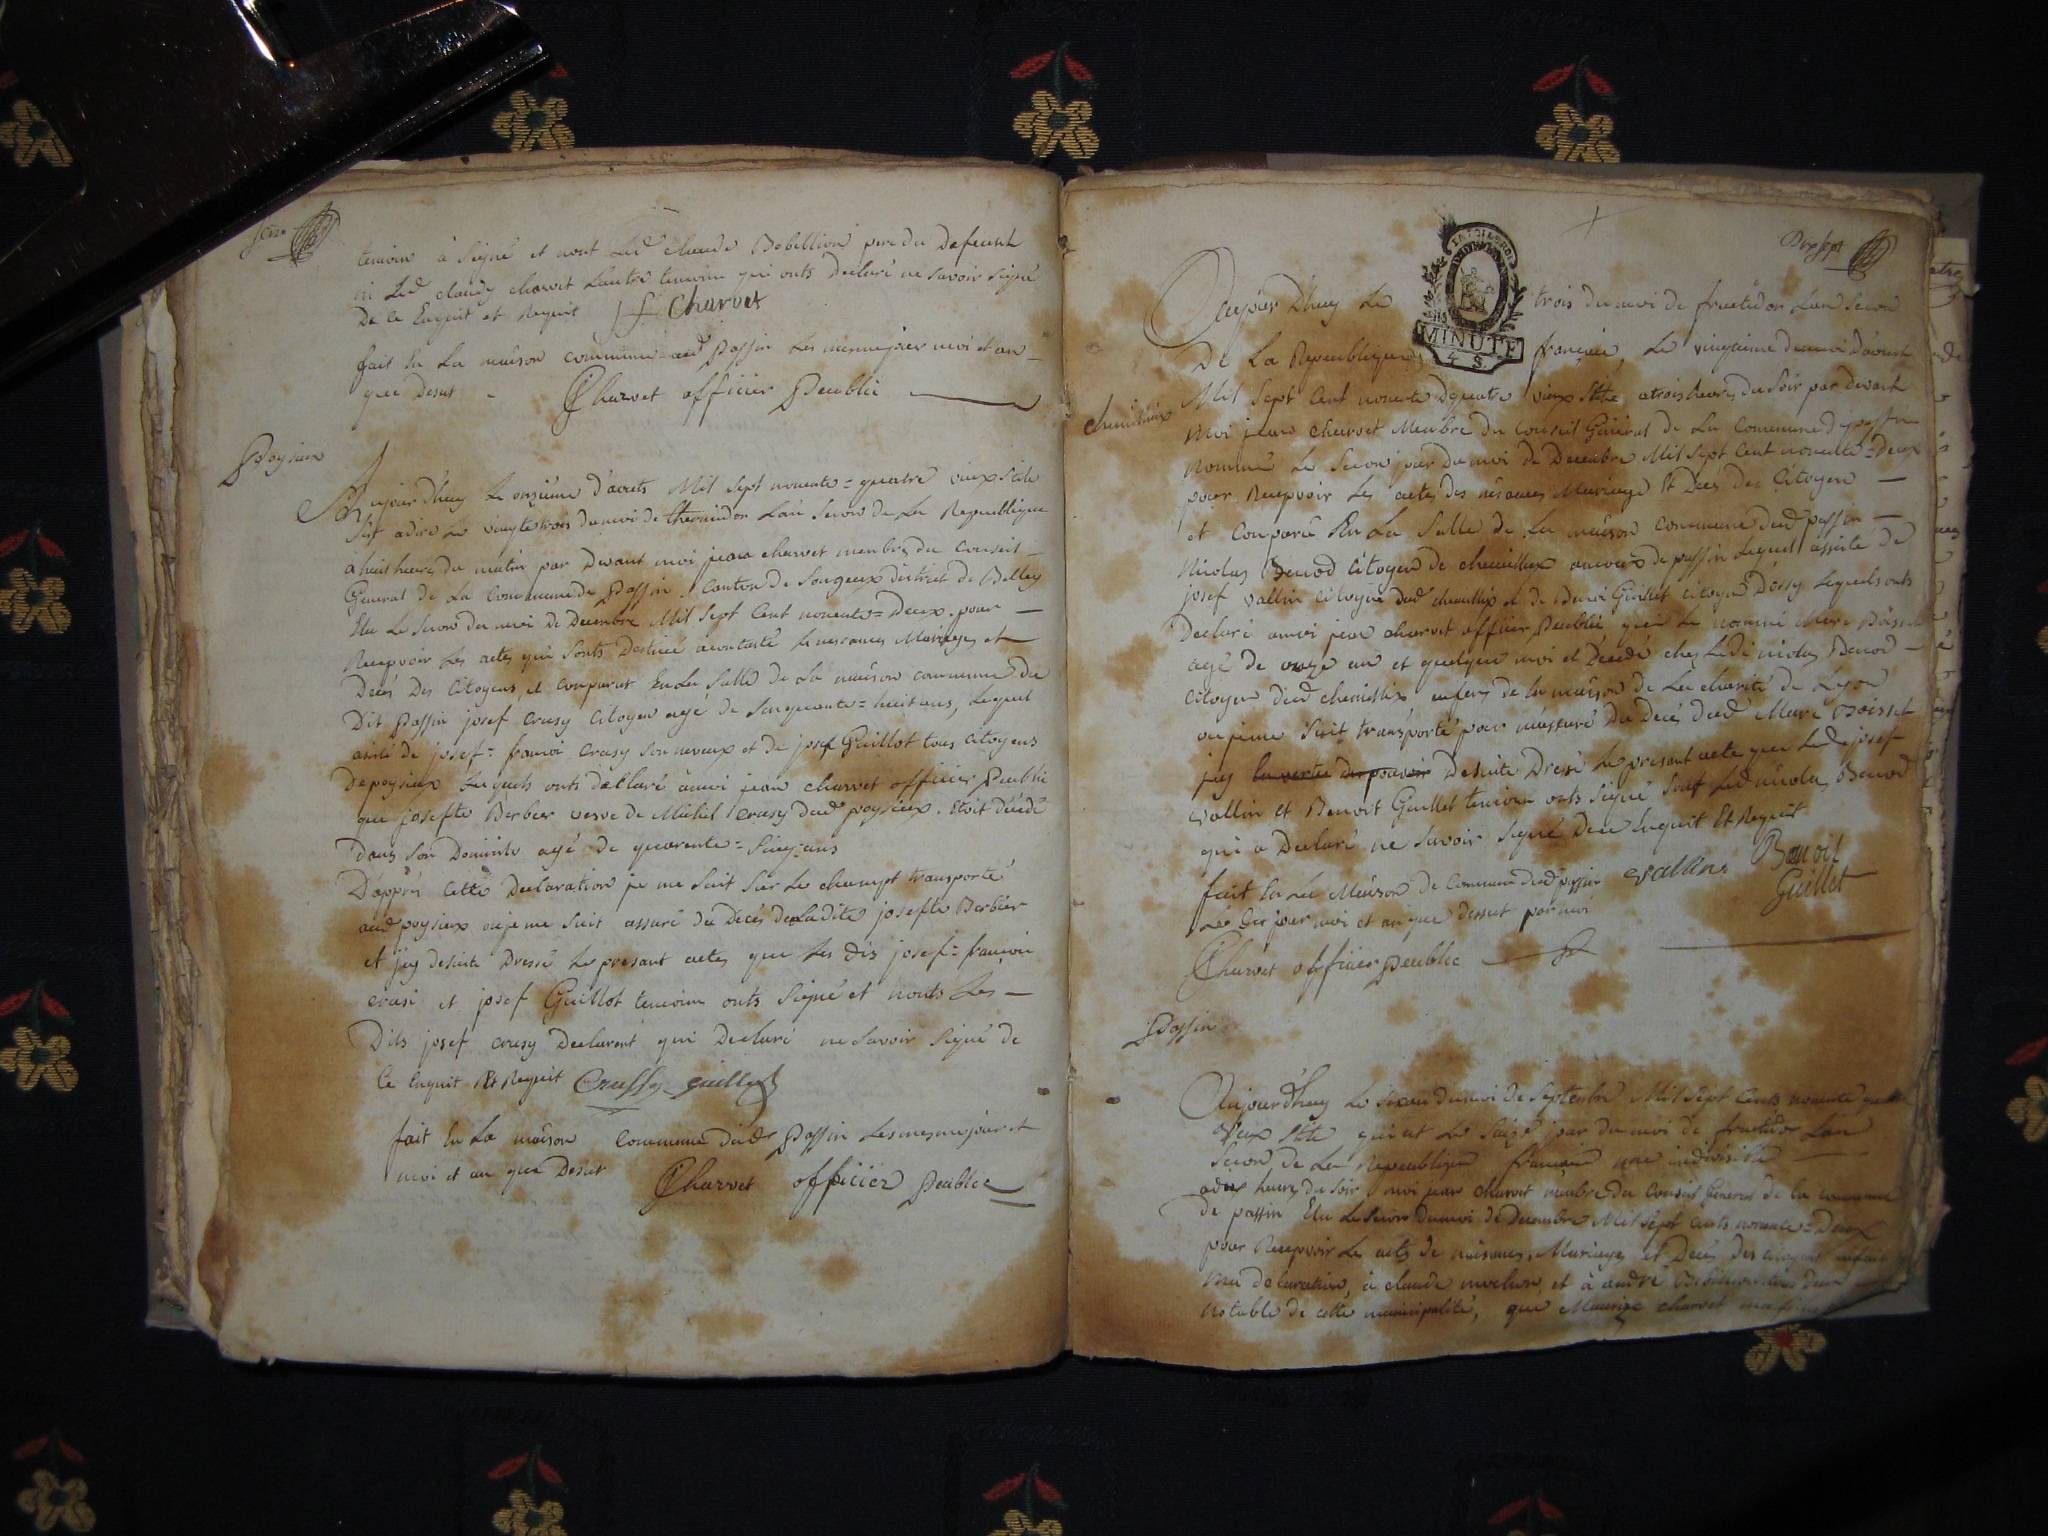 temoin à Signé et nont Led claude Bobillion pere du Defeunt
ni Led claudy charvet Lautre temoin qui onts Declaré ne Savoir Signé
De ce Enquit et Requit J f Charvet
fait En La maison commune aud Passin Les memejour moi et an
que Desut Charvet officier Peublic
Poysieux
Aujourdhuy Le onzieme d'aouts Mil Sept nonente = quatre vieux Stile
Sist adire Le vingtetrois du moi de thermidor L'an Secon de La Republique
a huit heure du matin par Devant moi jean charvet menbre du Conseil
General de La Commune de Passin Canton de Songeux district de Belley
Elu Le Secon du moi de Decembre Mil Sept Cent nonente = Deux pour
Recepvoir Les actes qui Sonts Destiné a contaté Les nesances Mariages et
Décés Des Citoyens, et comparut En La Salle de La maison commune du
Dit Passin josef crusy Citoyen agé de Sinquante = huit ans, Lequel
asisté de josef = francoi crusy Son neveux et de josef Guillot tous citoyens
De poysieux Lequels onts déclaré a moi jean charvet officier Peublic
que josefte Berbier veuve de Michel crusy dud poysieux Etoit décédé
Dans Son Domicile agé de quarente = Sinq ans
D'apprés Cette Declaration je me Suit Sur Le champt transporté
aud poysieux ou je me Suit assuré du Decés de Ladite josefte Berbier
et j'ay desuite Dressé Le présant actes que Les dis josef = francoi
crusi et josef Guillot temoins onts Signé et nonts Les
Dits josef crusy Declarent qui Declaré ne Savoir Signé de
Ce Enquit Et Requit Crussy Guillot
fait En La maison Commune dud Passin Les memejour et
moi et an que Desut Charvet officier Peublic
Aujour Dhuy Le trois du moi de fructidor Lan Secon
De La Republique francaise, Le vingtieme du moi Daoust
MINUTE
4 S
Mil Sept Cent nonente quatre vieux Stile atrois heures du Soir par devant
chemillieux
Moi jean charvet Menbre du Conseil Général de La Commune de passin
nommé Le Secon jour du moi de Decembre Mil Sept Cent nonente = Deux
pour Recepvoir Les actes des nésances Mariage Et Décés des Citoyen
et Comparu En La Salle de La maison commune dud passin
Nicolas Benod Citoyen de chemillieux Lequel assisté de
josef vallin citoyen dud et de Benoi Guillet citoyen Dossy Lequels onts
Declaré amoi jean charvet officier Peublic que Le nommé Marc Boisset
agé de onze an et quelque moi et Décédé chez Ledi nicolas Benod
Citoyen dud enfens de La maison de La charité de Lyon
ou jeme Suit transporté pour Du Decé dud Marc Boisset
jay en vertu du pouvoir Desuite Dresé Le presant acte que Led josef
vallin et Benoit Guillet temoin onts Signé Led nicolas Benod
qui a Declaré ne Savoir Signé De ce Enquit Et Requit
fait En La Maison de Commune dud passin vallin Benoit
Guillet
Les jour moi et an que dessut par moi
Charvet officier peublic
Passin
Aujourdhuy Le du moi de Septembre Mil Sept Cents nonente quatre
vieux Stile qui et Le Saize jour du moi de fructidor Lan
Secon de La Republique francaise une indivisible
a heures du Soir moi jean charvet menbre du Conseil General de la commune
de passin Elu Le Secon du moi de Decembre Mil Sept Cents nonente = Deux
pour Recepvoir Les acts de naisances, Mariages et Decés Des citoyens
declaration, à claude et à andré
notable de cette municipalité, que Maurize charvet